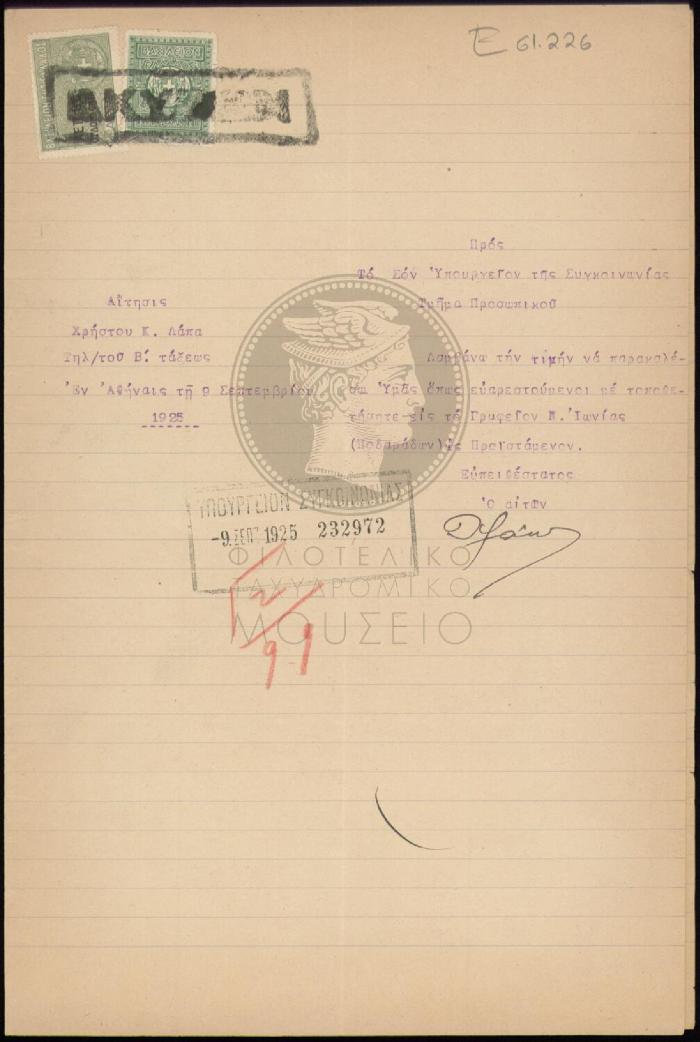 Ε 61.226
ΒΑΣΙΛΕΙΟΝ
Πρός
Τό Σόν Ὑπουργεῖον τῆς Συγκοινωνίας
Τμῆμα Προσωπικοῦ
Αἴτησις
Χρήστου Κ. Λάπα
Τηλ/τοῦ Β΄. τάξεως
Ἐν Ἀθήναις τῇ 9 Σεπτεμβρίου
1925
Λαμβάνω τήν τιμήν νά παρακαλέ-
σω Ὑμᾶς ὅπως εὐαρεστούμενοι μέ τοποθε-
τήσητε είς τό Γραφεῖον Ν. Ἰωνίας
(Ποδαράδων) ὡς Προϊστάμενον.
Εὐπειθέστατος
Ὁ αἰτῶν
ΥΠΟΥΡΓΕΙΟΝ ΣΥΓΚΟΙΝΩΝΙΑΣ
-9. ΣΕΠ 1925 232972
ΦΙΛΟΤΕΛΙΚΟ
ΤΑΧΥΔΡΟΜΙΚΟ
ΜΟΥΣΕΙΟ
9-9